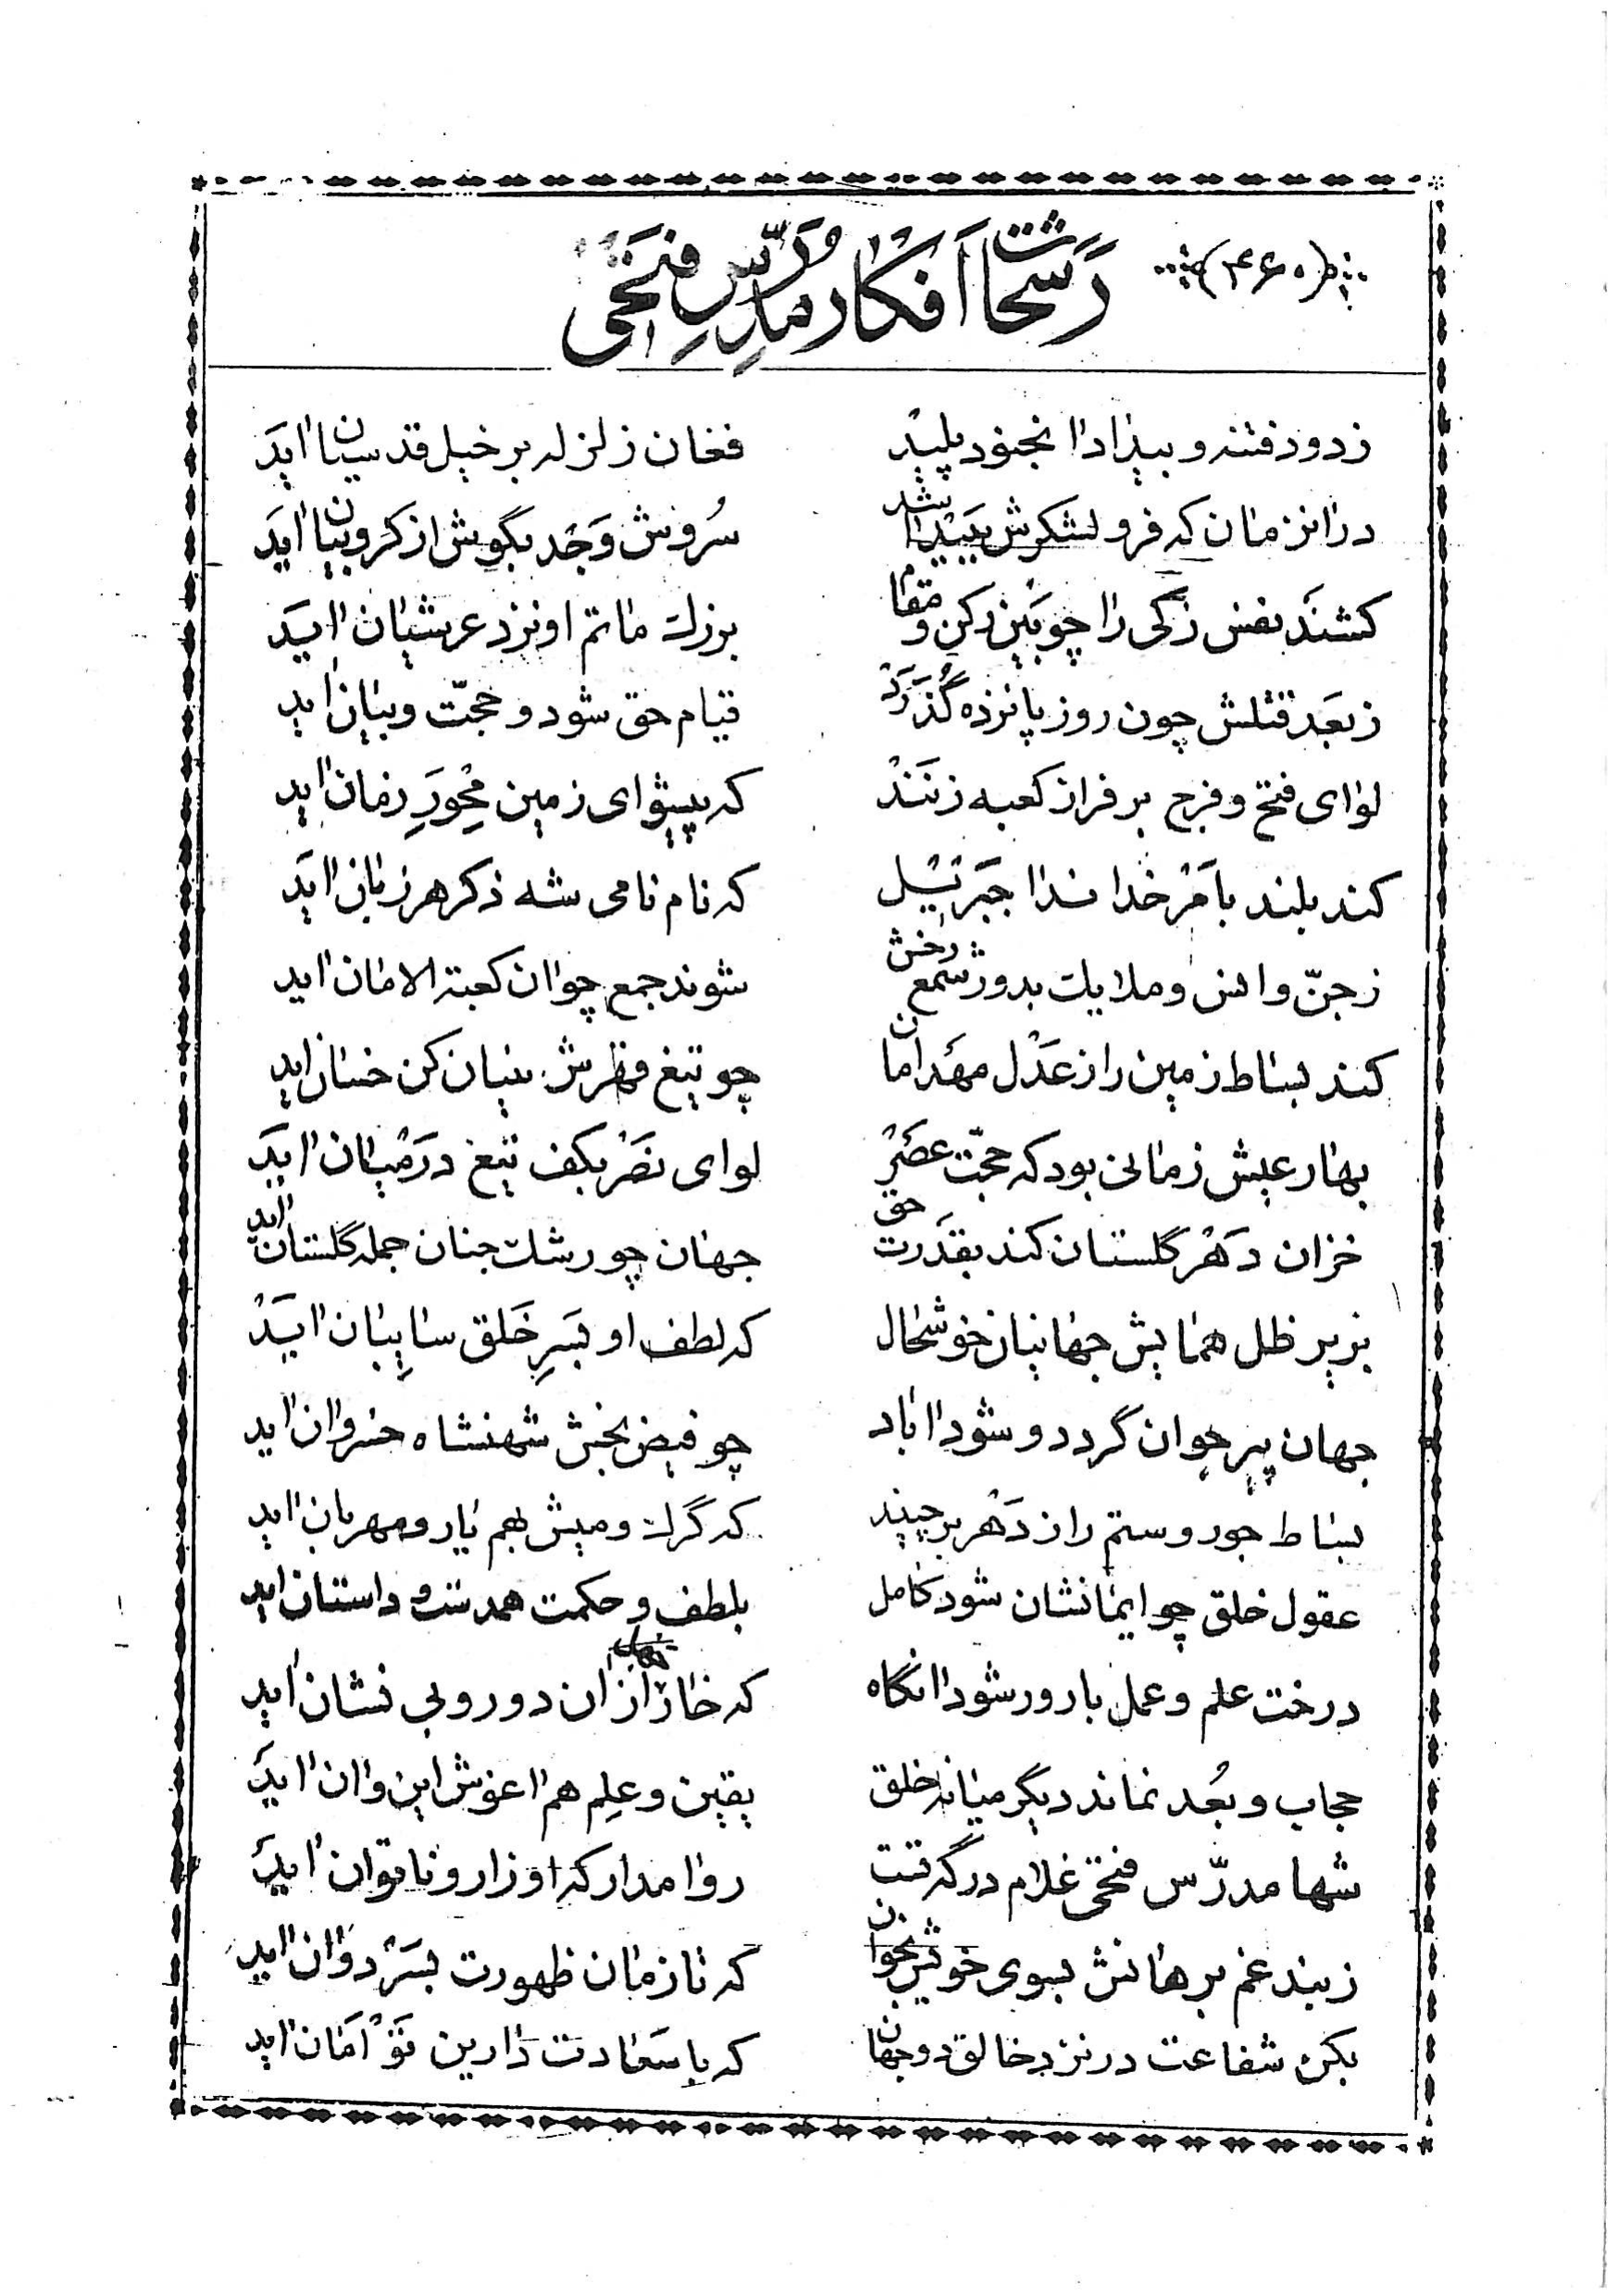 (۴۶۰)
رَشحات اَفکار مُدَرِّس فتحی
ز دود فتنه و بیداد آن جنود پلید فغان زلزله بر خیل قدسیان آید
در آن زمان که فرو لشکرش ببیدا شد سُروش وَجْد بگوش از کروبیان آید
کشند نفس زکی را چو بَیْن رکن و مقام بزرك ماتم او نزد عرشیان آید
ز بَعد قتلش چون روز پانزده گُذَرَدْ قیام حق شود و حجّت و بیان آید
لوای فتح و فرج بر فراز کعبه زنَنَدْ که پیشوای زمین مِحْوَرِ زمان آید
کند بلند بامْر خدا ندا جبرئیل که نام نامی شه ذکر هر زبان آید
ز جنّ و انس و ملایك بدور شمع رخش شوند جمع چو آن کعبة الامان آید
کند بساط زمین را ز عَدْل مهد امان چو تیغ قهرش بنیان کن خسان آید
بهار عیش زمانی بود که حجّت عصْر لوای نصْر بکف تیغ در میان آید
خزان دَهْر گلستان کند بقدرت حق جهان چو رشك جنان جمله گلستان آید
بزیر ظل همایش جهانیان خوشحال که لطف او بسَرِ خَلق سایِبان آیَدْ
جهان پیر جوان گردد و شود آباد چو فیض بخش شهنشاه خسروان آید
بساط جور و ستم را ز دَهْر برچیند که گرك و میش بهم یار و مهربان آید
عقول خلق چو ایمانشان شود کامل بلطف و حکمت همدست و داستان آید
درخت علم و عمل بارور شود آنگاه که خار از آن دور و بی نشان آید
حجاب و بُعد نماند دیگر میانه خلق یقین و علم هم آغوش این و آن آید
شها مدرّس فتحی غلام درگه تست روا مدار که او زار و ناتوان آید
ز بند غم برهانش بسوی خویش بخوان که تا زمان ظهورت بسَرْ دَوان آید
بکن شفاعت در نزد خالق دو جهان که با سَعادت دارین تَوْ اَمَان آید